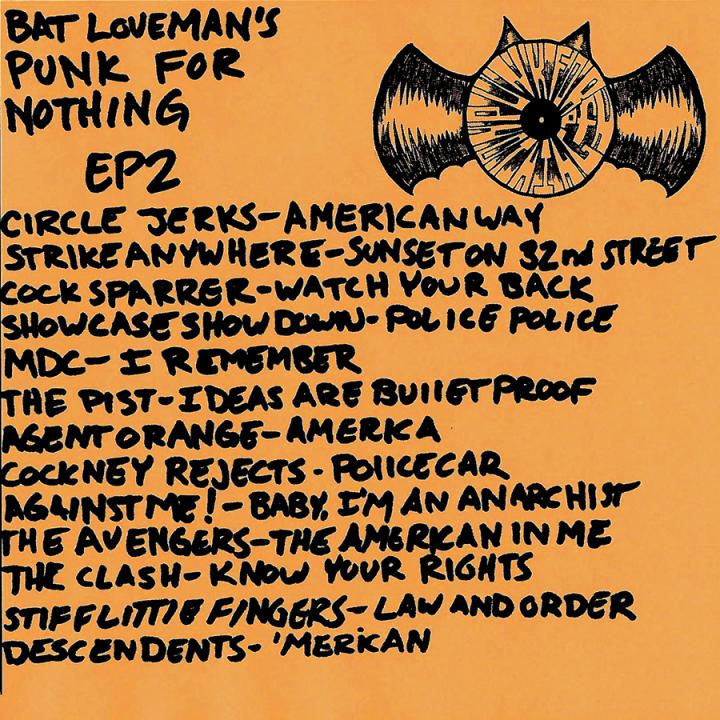 BAT LOVEMAN'S
PUNK FOR
NOTHING
EP2
PUNK FOR NOTHING
CIRCLE JERKS-AMERICAN WAY
STRIKE ANYWHERE-SUNSET ON 32nd STREET
COCK SPARRER-WATCH YOUR BACK
SHOWCASE SHOWDOWN-POLICE POLICE
MDC-I REMEMBER
THE PIST-IDEAS ARE BUllET PROOF
AGENT ORANGE-AMERICA
COCKNEY REJECTS-POlICE CAR
AGAINST ME!-BABY, I'M AN ANARCHIST
THE AVENGERS-THE AMERICAN IN ME
THE CLASH-KNOW YOUR RIGHTS
STIFF LITTlE FINGERS-LAW AND ORDER
DESCENDENTS-'MERiCAN